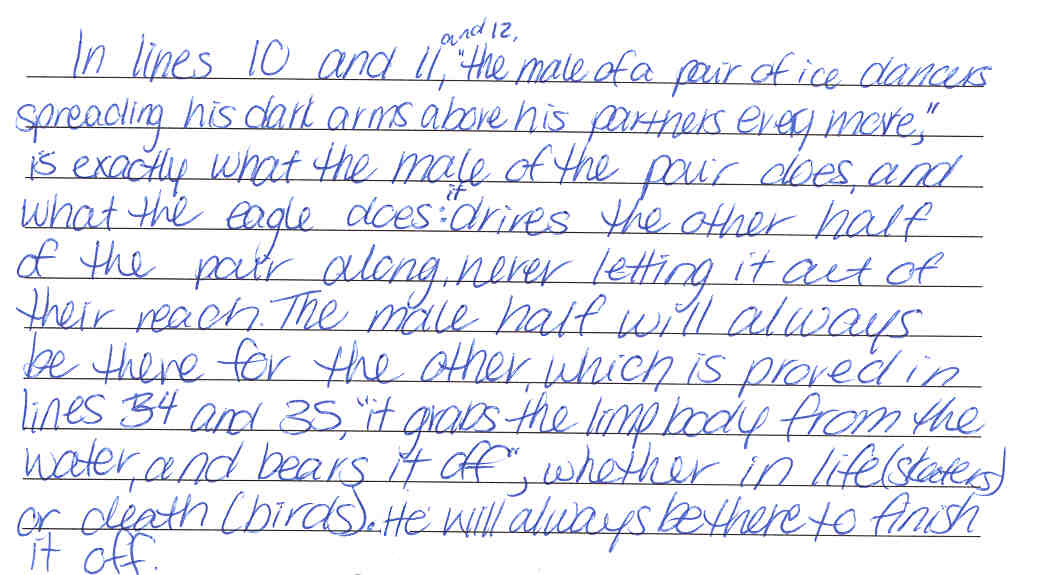 In lines 10 and 11, and 12, "the male of a pair of ice dancers
spreading his dark arms above his partners every move,"
is exactly what the male of the pair does, and
what the eagle does: it drives the other half
of the pair along, never letting it out of
their reach. The male half will always
be there for the other, which is proved in
lines 34 and 35, "it grabs the limp body from the
water, and bears it off", whether in life (skaters)
or death (birds). He will always be there to finish
it off.